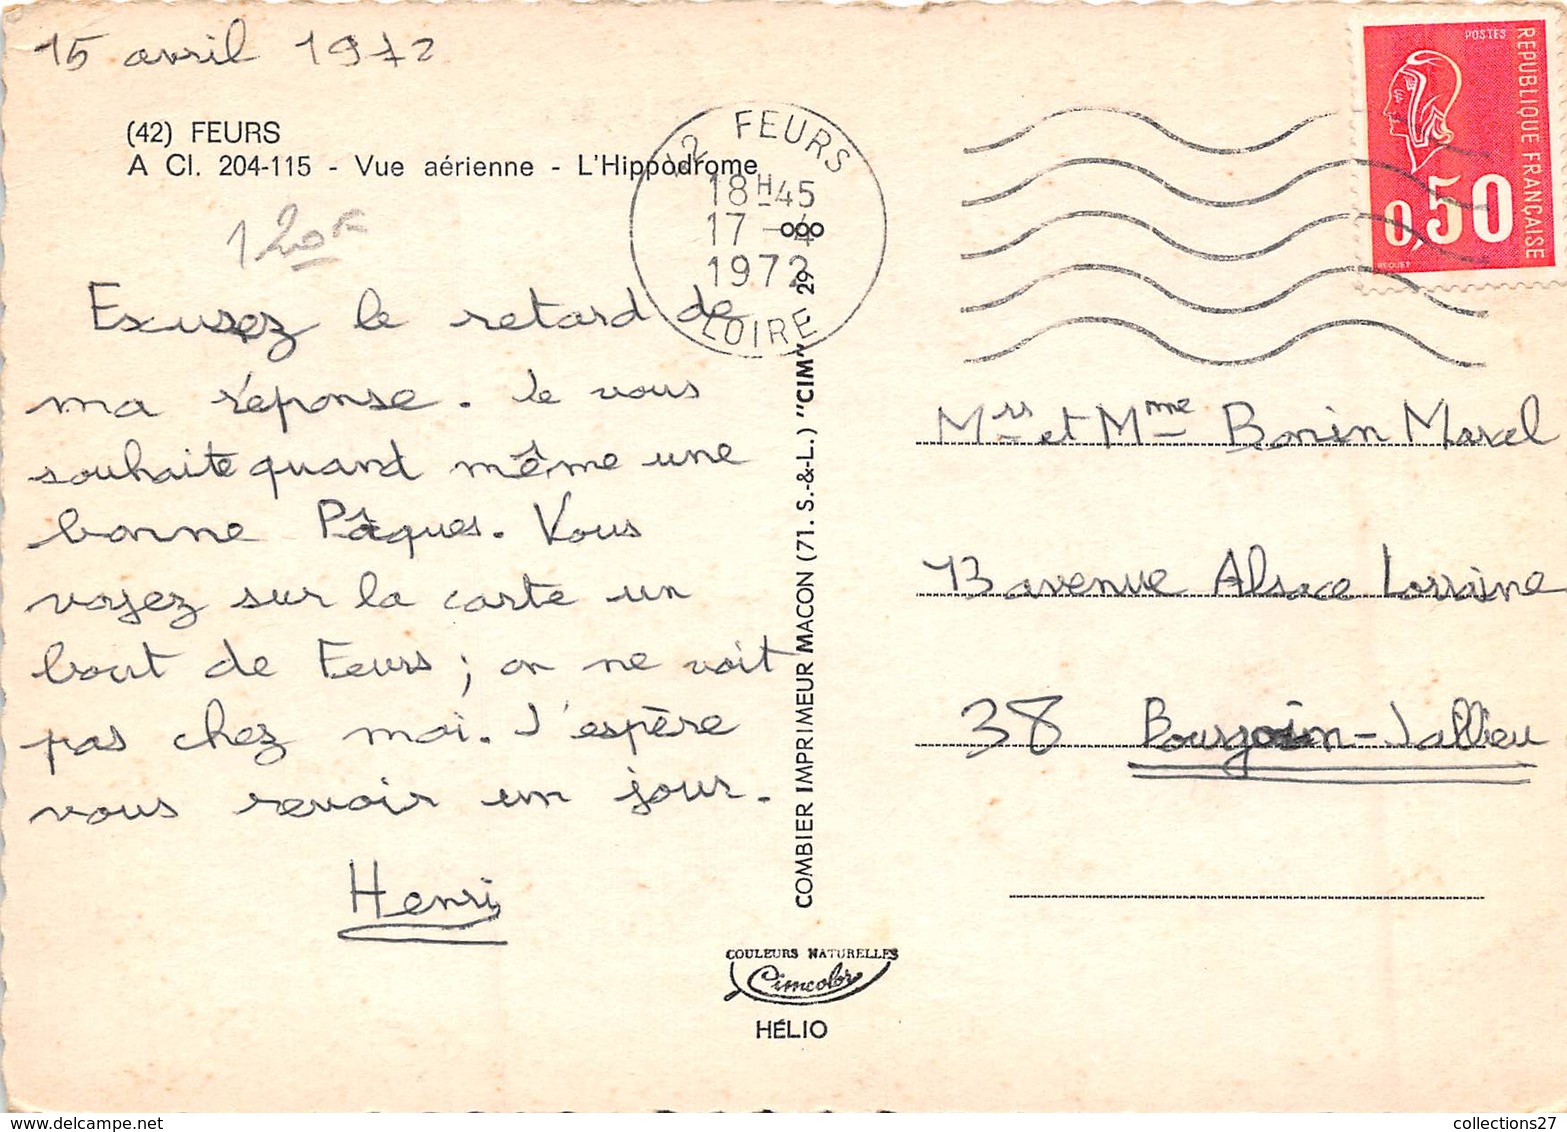 15 avril 1972
(42) FEURS
A Cl. 204-115 - Vue aérienne - L'Hippòdrome
Exusez le retard de
ma réponse. Je vous
souhaite quand même une
bonne Pâques. Vous
voyez sur la carte un
bout de Feurs ; on ne voit
pas chez moi. J'espère
vous revoir un jour.
Henri
42 FEURS
18H45
17 - 4
1972
LOIRE
COMBIER IMPRIMEUR MACON (71. S.-&-L.) "CIM" 29
COULEURS NATURELLES
Cimcolor
HÉLIO
POSTES
REPUBLIQUE FRANÇAISE
0,50
BEQUET
Mrs et Mme Bonin Marcel
13 avenue Alsace Lorraine
38 Bourgoin-Jallieu
collections27